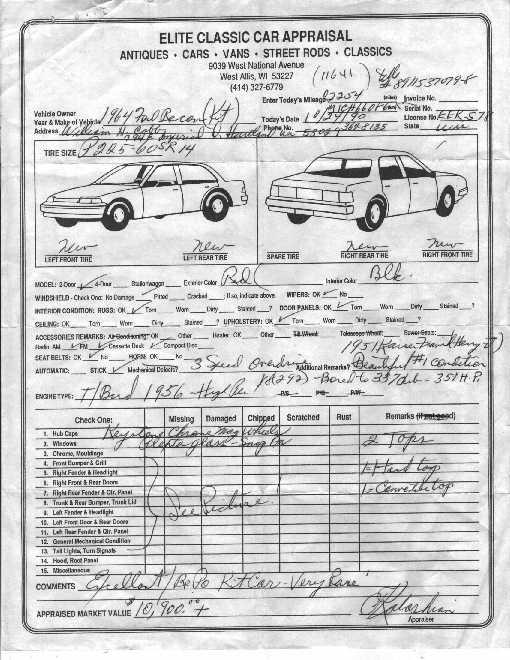 ELITE CLASSIC CAR APPRAISAL
ANTIQUES • CARS • VANS • STREET RODS • CLASSICS
9039 West National Avenue
West Allis, WI 53227
(414) 327-6779
(11641)
Enter Today's Mileage 2254 (miles) Invoice No.
Vehicle Owner
Year & Make of Vehicle 1964 (Kit) Serial No.
Today's Date 10/24/90 License No. EEK-578
Address William H. Phone No. State
TIRE SIZE P225-60SR14
New New New New
LEFT FRONT TIRE LEFT REAR TIRE SPARE TIRE RIGHT REAR TIRE RIGHT FRONT TIRE
MODEL: 2-Door 4-Door Stationwagon Exterior Color Red Interior Color Blk.
WINDSHIELD - Check One: No Damage Pitted Cracked If so, indicate above. WIPERS: OK No
INTERIOR CONDITION: RUGS: OK Torn Worn Dirty Stained ? DOOR PANELS: OK Torn Worn Dirty Stained ?
CEILING: OK Torn Worn Dirty Stained ? UPHOLSTERY: OK Torn Worn Dirty Stained
ACCESSORIES REMARKS: Air Conditioning: OK Other Intake: OK Other Tilt Wheel: Telescope Wheel: Power Seats:
Radio: AM FM Cassette Deck Compact Disc 1951
SEAT BELTS: OK No HORN: OK No Additional Remarks? Beautiful #1 Condition
AUTOMATIC: STICK Mechanical Defects? 3 Speed Overdrive
ENGINE TYPE: T/Bird 1956 P/S P/B P/W
Check One: Missing Damaged Chipped Scratched Rust Remarks (if not good)
1. Hub Caps Keystone Chrome Mag Wheels
2. Windows 2 Tops
3. Chrome, Mouldings
4. Front Bumper & Grill 1-Hard top
5. Right Fender & Headlight
6. Right Front & Rear Doors
7. Right Rear Fender & Qtr. Panel 1-Convertible top
8. Trunk & Rear Bumper, Trunk Lid See Picture
9. Left Fender & Headlight
10. Left Front Door & Rear Doors
11. Left Rear Fender & Qtr. Panel
12. General Mechanical Condition
13. Tail Lights, Turn Signals
14. Hood, Roof Panel
15. Miscellaneous
COMMENTS Excellent Kit Car - Very Rare
APPRAISED MARKET VALUE $10,900.00+
Appraiser